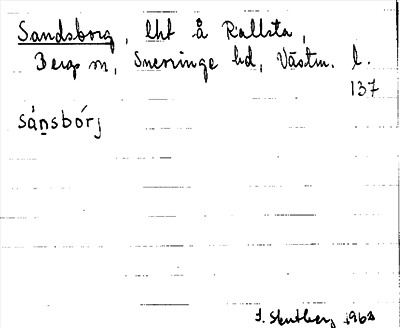 Sandsborg, lht å Rallsta,
Bergs sn, Snevringe hd, Västm. l.
137
sánsbórj
1962